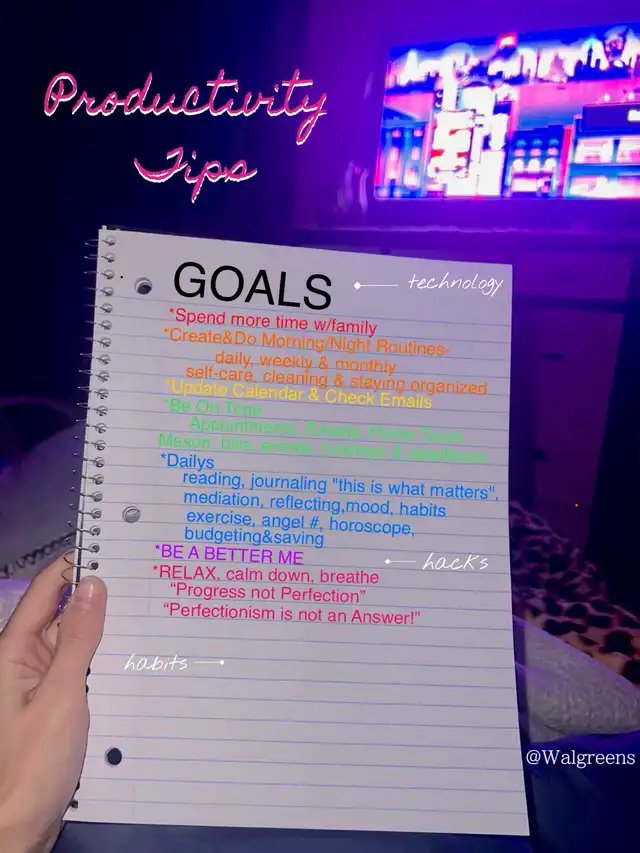 Productivity
Tips
GOALS
technology
*Spend more time w/family
*Create&Do Morning/Night Routines-
daily, weekly & monthly
self-care, cleaning & staying organized
*Update Calendar & Check Emails
*Be On Time
Appointments, Emails, Home Town
bills, events, holidays & deadlines
*Dailys
reading, journaling "this is what matters",
mediation, reflecting,mood, habits
exercise, angel #, horoscope,
budgeting&saving
*BE A BETTER ME
hacks
*RELAX, calm down, breathe
"Progress not Perfection"
"Perfectionism is not an Answer!"
habits
@Walgreens